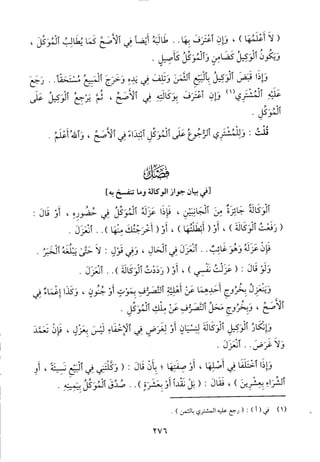 ( لَا أَعْلَمُهَا ) ، وَإِنِ ٱعْتَرَفَ بِهَا . . طَالَبَهُ أَيْضاً فِي ٱلْأَصَحِّ كَمَا يُطَالِبُ ٱلْمُوَكِّلَ ،
وَيَكُونُ ٱلْوَكِيلُ كَضَامِنٍ وَٱلْمُوَكِّلُ كَأَصِيلٍ .
وَإِذَا قَبَضَ ٱلْوَكِيلُ بِٱلْبَيْعِ ٱلثَّمَنَ وَتَلِفَ فِي يَدِهِ وَخَرَجَ ٱلْمَبِيعُ مُسْتَحَقّاً . . رَجَعَ
عَلَيْهِ ٱلْمُشْتَرِي(١) وَإِنِ ٱعْتَرَفَ بِوَكَالَتِهِ فِي ٱلْأَصَحِّ ، ثُمَّ يَرْجِعُ ٱلْوَكِيلُ عَلَى
ٱلْمُوَكِّلِ .
قُلْتُ : وَلِلْمُشْتَرِي ٱلرُّجُوعُ عَلَى ٱلْمُوَكِّلِ ٱبْتِدَاءً فِي ٱلْأَصَحِّ ، وَٱللهُ أَعْلَمُ .
فَصْلٌ
[في بيان جواز الوكالة وما تنفسخ به]
ٱلْوَكَالَةُ جَائِزَةٌ مِنَ ٱلْجَانِبَيْنِ ، فَإِذَا عَزَلَهُ ٱلْمُوَكِّلُ فِي حُضُورِهِ ، أَوْ قَالَ :
( رَفَعْتُ ٱلْوَكَالَةَ ) ، أَوْ ( أَبْطَلْتُهَا ) ، أَوْ ( أَخْرَجْتُكَ مِنْهَا ) . . ٱنْعَزَلَ .
فَإِنْ عَزَلَهُ وَهُوَ غَائِبٌ . . ٱنْعَزَلَ فِي ٱلْحَالِ ، وَفِي قَوْلٍ : لَا حَتَّىٰ يَبْلُغَهُ ٱلْخَبَرُ .
وَلَوْ قَالَ : ( عَزَلْتُ نَفْسِي ) ، أَوْ ( رَدَدْتُ ٱلْوَكَالَةَ ) . . ٱنْعَزَلَ .
وَيَنْعَزِلُ بِخُرُوجِ أَحَدِهِمَا عَنْ أَهْلِيَّةِ ٱلتَّصَرُّفِ بِمَوْتٍ أَوْ جُنُونٍ ، وَكَذَا إِغْمَاءٌ فِي
ٱلْأَصَحِّ ، وَبِخُرُوجِ مَحَلِّ ٱلتَّصَرُّفِ عَنْ مِلْكِ ٱلْمُوَكِّلِ .
وَإِنْكَارُ ٱلْوَكِيلِ ٱلْوَكَالَةَ لِنِسْيَانٍ أَوْ لِغَرَضٍ فِي ٱلْإِخْفَاءِ لَيْسَ بِعَزْلٍ ، فَإِنْ تَعَمَّدَ
وَلَا غَرَضَ . . ٱنْعَزَلَ .
وَإِذَا ٱخْتَلَفَا فِي أَصْلِهَا ، أَوْ صِفَتِهَا ؛ بِأَنْ قَالَ : ( وَكَّلْتَنِي فِي ٱلْبَيْعِ نَسِيئَةً ، أَوِ
ٱلشِّرَاءِ بِعِشْرِينَ ) ، فَقَالَ : ( بَلْ نَقْداً أَوْ بِعَشَرَةٍ ) . . صُدِّقَ ٱلْمُوَكِّلُ بِيَمِينِهِ .
(١) في (أ) : ( رجع عليه المشتري بالثمن ) .
٢٧٦